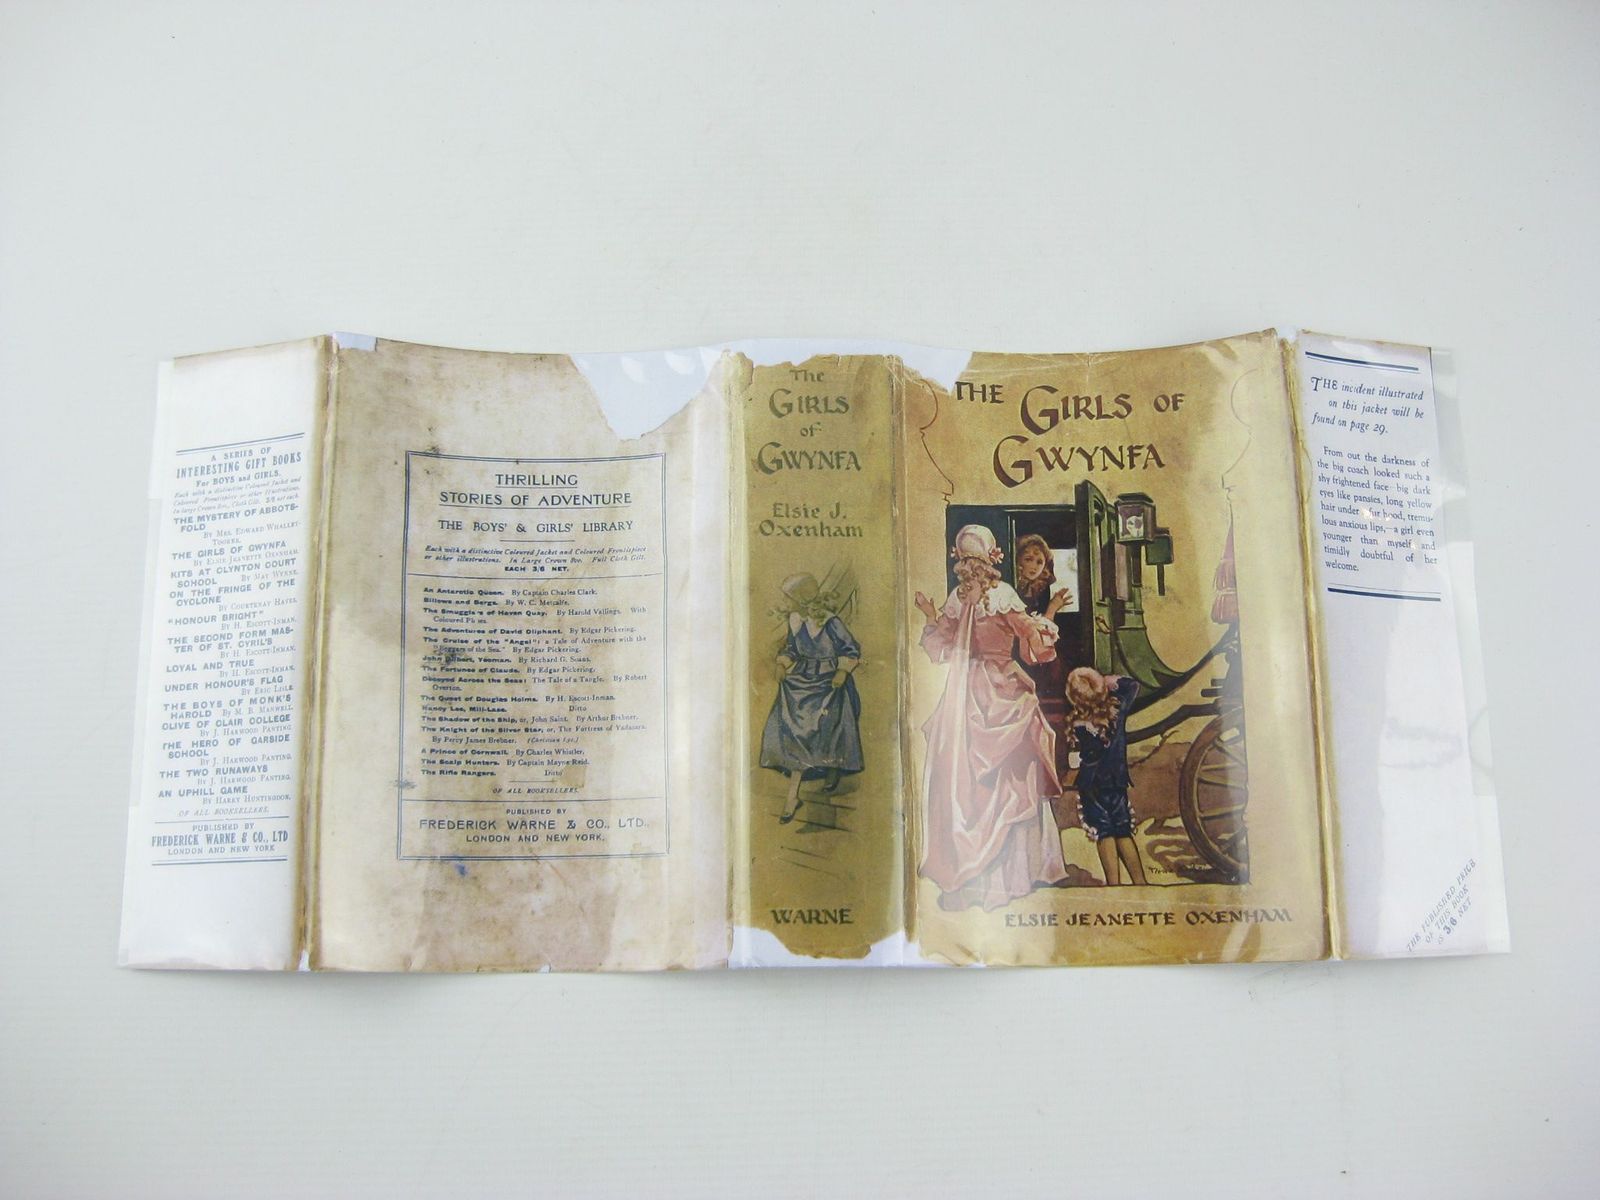 A SERIES OF
INTERESTING GIFT BOOKS
For BOYS and GIRLS.
Each with a distinctive Coloured Jacket and
Coloured Frontispiece or other Illustrations.
In large Crown 8vo, Cloth Gilt. 3/6 net each.
THE MYSTERY OF ABBOTS-
FOLD
By MRS. EDWARD WHALLEY-
TOOKER.
THE GIRLS OF GWYNFA
By ELSIE JEANETTE OXENHAM.
KITS AT CLYNTON COURT
SCHOOL By MAY WYNNE.
ON THE FRINGE OF THE
CYCLONE
By COURTENAY HAYES.
"HONOUR BRIGHT"
By H. ESCOTT-INMAN.
THE SECOND FORM MAS-
TER OF ST. CYRIL'S
By H. ESCOTT-INMAN.
LOYAL AND TRUE
By H. ESCOTT-INMAN.
UNDER HONOUR'S FLAG
By ERIC LISLE.
THE BOYS OF MONK'S
HAROLD By M. B. MANWELL.
CLIVE OF CLAIR COLLEGE
By J. HARWOOD PANTING.
THE HERO OF GARSIDE
SCHOOL
By J. HARWOOD PANTING.
THE TWO RUNAWAYS
By J. HARWOOD PANTING.
AN UPHILL GAME
By HARRY HUNTINGDON.
OF ALL BOOKSELLERS.
PUBLISHED BY
FREDERICK WARNE & CO., LTD
LONDON AND NEW YORK
THRILLING
STORIES OF ADVENTURE
THE BOYS' & GIRLS' LIBRARY
Each with a distinctive Coloured Jacket and Coloured Frontispiece
or other illustrations. In Large Crown 8vo. Full Cloth Gilt.
EACH 3/6 NET.
An Antarctic Queen. By Captain Charles Clark.
Billows and Bergs. By W. C. Metcalfe.
The Smugglers of Haven Quay. By Harold Vallings. With
Coloured Plates.
The Adventures of David Oliphant. By Edgar Pickering.
The Cruise of the "Angel": a Tale of Adventure with the
"Beggars of the Sea." By Edgar Pickering.
John Gilbert, Yeoman. By Richard G. Soans.
The Fortunes of Claude. By Edgar Pickering.
Decoyed Across the Seas: The Tale of a Tangle. By Robert
Overton.
The Quest of Douglas Holms. By H. Escott-Inman.
Nancy Lee, Mill-Lass. Ditto
The Shadow of the Ship, or, John Saint. By Arthur Brebner.
The Knight of the Silver Star; or, The Fortress of Yadasara.
By Percy James Brebner. (Christian Lys.)
A Prince of Cornwall. By Charles Whistler.
The Scalp Hunters. By Captain Mayne Reid.
The Rifle Rangers. Ditto
OF ALL BOOKSELLERS.
PUBLISHED BY
FREDERICK WARNE & CO., LTD.,
LONDON AND NEW YORK.
The
GIRLS
of
GWYNFA
Elsie J.
Oxenham
WARNE
THE GIRLS OF
GWYNFA
ELSIE JEANETTE OXENHAM
THE incident illustrated
on this jacket will be
found on page 29.
From out the darkness of
the big coach looked such a
shy frightened face—big dark
eyes like pansies, long yellow
hair under a fur hood, tremu-
lous anxious lips,—a girl even
younger than myself and
timidly doubtful of her
welcome.
THE PUBLISHED PRICE
OF THIS BOOK
IS 3/6 NET